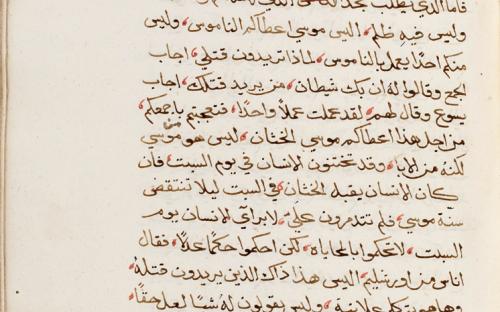 فاما الذي يطلب مجد
وليس فيه ظلم، اليس موسي اعطاكم الناموس، وليس
منكم احدًا يعمل بالناموس، لماذا تريدون قتلي، اجاب
الجمع وقالوا له ان بك شيطان، مز يريد قتلك، اجاب
يسوع وقال لهم، لقد عملت عملاً واحدًا، فتعجبتم باجمعكم،
من اجل هذا اعطاكم موسي الختان، ليس هو من موسي
لكنه مز الابا، وقد تختنون الانسان في يوم السبت، فان
كان الانسان يقبل الختان، في السبت ليلا تنتقض
سنة موسي، فلم تتذمرون عليّ، لابراي الانسان يوم
السبت، لا تحكموا بالمحاياه، لكن احكموا حكمًا عدلاً، فقال
اناس مز اورشليم، اليس هذا ذاك الذين يريدون قتله،
وها هو يتكلم علانية، وليس يقولون له شيًا لعل حقًا،